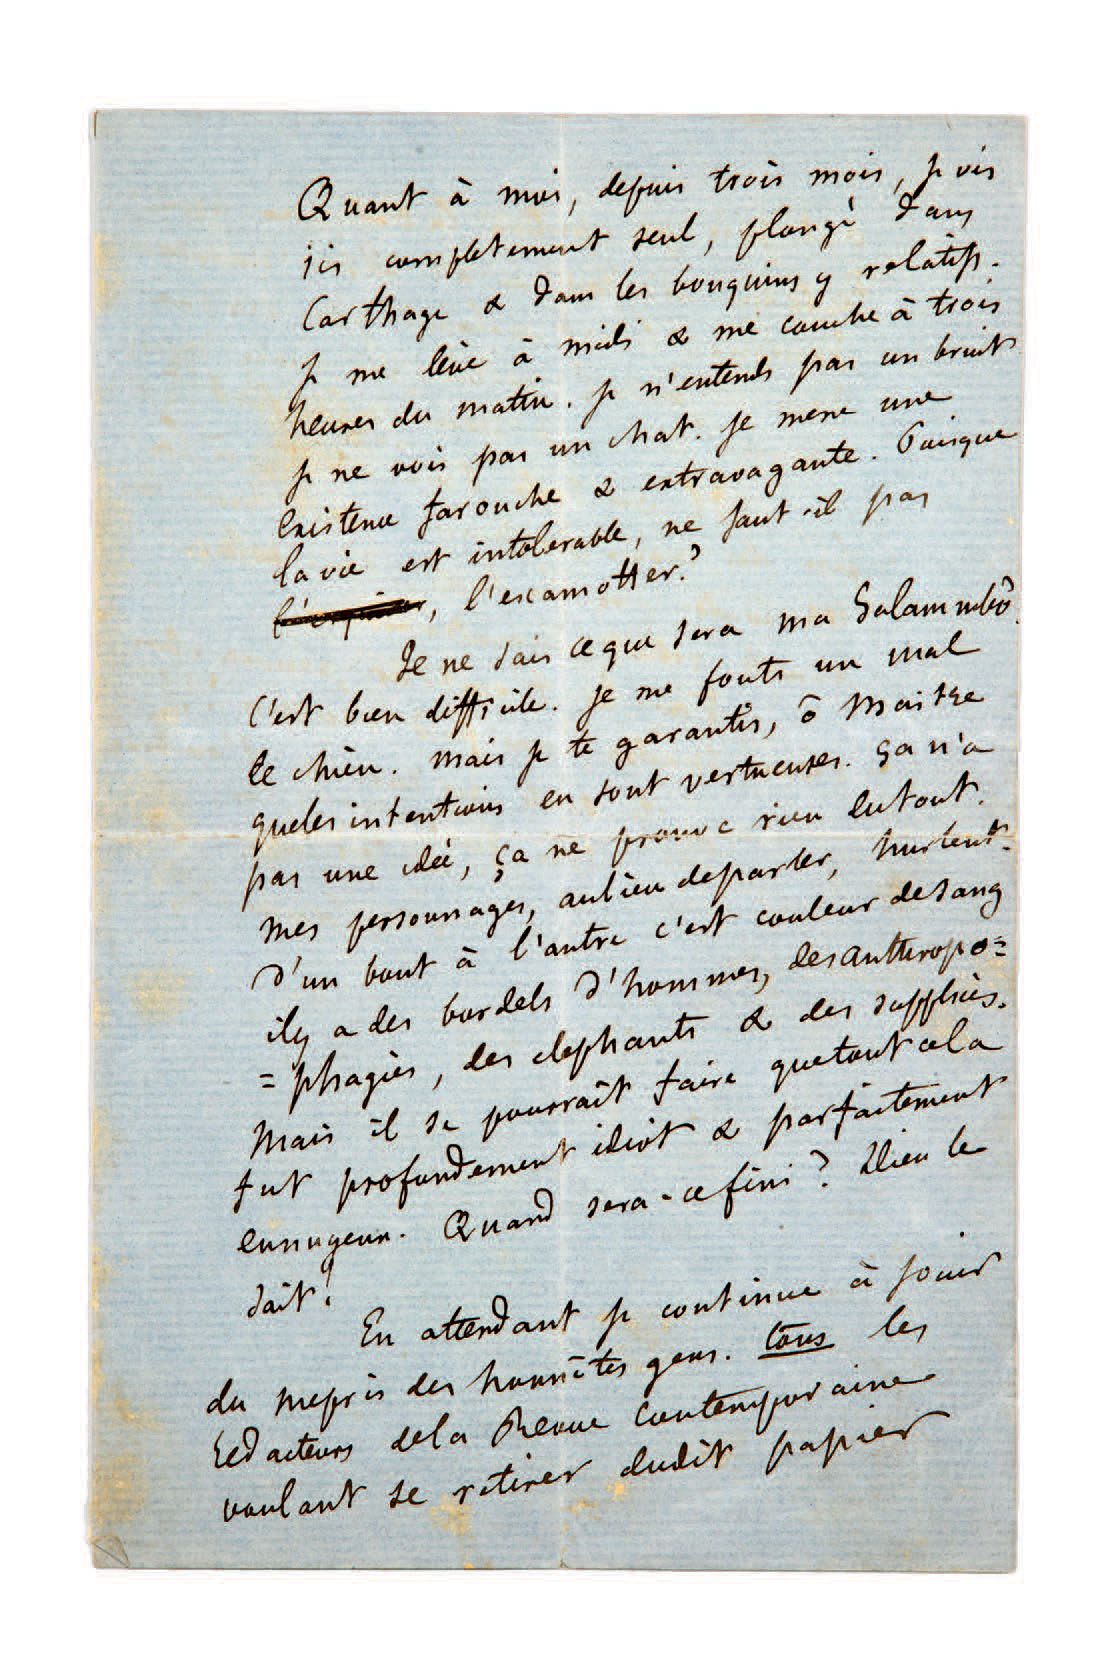 Quant à moi, depuis trois mois, je vis
ici completement seul, plongé dans
Carthage & dans les bouquins y relatifs.
je me lève à midi & me couche à trois
heures du matin. je n'entends pas un bruit
je ne vois pas un chat. je mene une
existence farouche & extravagante. Puisque
la vie est intolerable, ne faut-il pas
, l'escamotter?
Je ne sais ce que sera ma Salammbô.
C'est bien difficile. je me fouts un mal
de chien. mais je te garantis, ô Maitre
que les intentions en sont vertueuses. ça n'a
pas une idée, ça ne prouve rien du tout.
mes personnages, au lieu de parler, hurlent.
d'un bout à l'autre c'est couleur de sang
il y a des bordels d'hommes, des anthropo=
=phagies, des elephants & des supplices.
Mais il se pourrait faire que tout cela
fut profondement idiot & parfaitement
ennuyeux. Quand sera-ce fini? Dieu le
sait!
En attendant je continue à jouir
du mepris des honnêtes gens. tous les
redacteurs de la Revue Contemporaine
voulant se retirer dudit papier